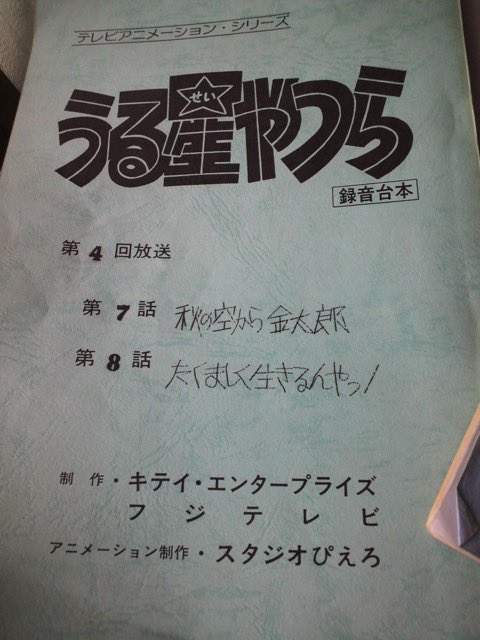 テレビアニメーション・シリーズ
うる星やつら
せい
録音台本
第4回放送
第7話 秋の空から金太郎
第8話 たくましく生きるんやっ!
制作・キティ・エンタープライズ
フジテレビ
アニメーション制作・スタジオぴえろ